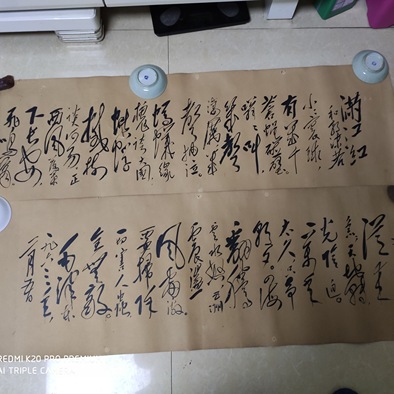 满江红
和郭沫若
小小寰球
有几个
苍蝇碰壁
嗡嗡叫
几声
凄厉几
声抽泣
蚂蚁缘
槐夸大国
蚍蜉
撼树
谈何易正
西风落叶
下长安
飞鸣镝
从来
急天地转
光阴迫
一万年
太久只争
朝夕四海
翻腾
云水怒五洲
震荡
风雷激
要扫除
一切害人虫
全无敌
毛泽东
一九六三年
REDMI K20 PRO PREMIUM
AI TRIPLE CAMERA